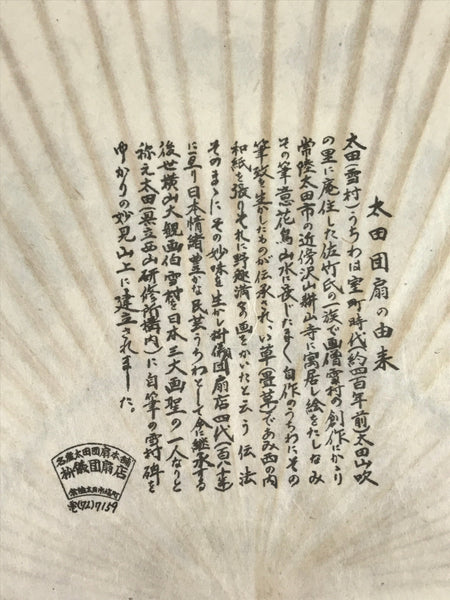 太田団扇の由来
太田(雪村)うちわは室町時代約四百年前)太田山吹
の里に庵住した佐竹氏の一族で画僧雪村の創作にかゝり
常陸太田市の近傍沢山耕山寺に寓居し絵をたしなみ
その筆意花鳥山水に長じたまたま自作のうちわにその
筆致を生かしたものが伝承され、い草(畳草)であみ西の内
和紙を張りそれに野趣満々の画をかいたと云う伝法
そのまゝに その妙味を生かし枡儀団扇店四代(百八十年)
に亘り日本情緒豊かな民芸うちわとして今に継承する
後世横山大観画伯雪村を日本三大画聖の一人なりと
称え太田(県立西山研修所構内)に自筆の雪村碑を
ゆかりの妙見山上に建立されました。
名産太田団扇本舗
枡儀団扇店
常陸太田市
電(72)7159